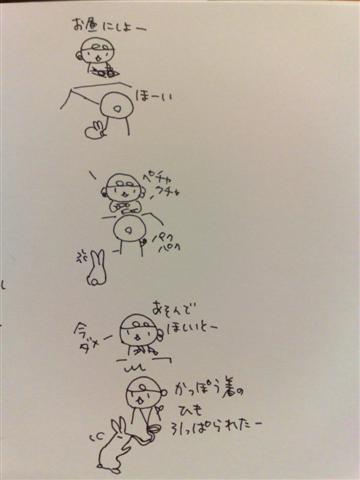 お昼にしよー
ほーい
ペチャ
クチャ
パク
パク
あそんで
ほしいとー
今
ダメー
かっぽう着の
ひも
引っぱられたー